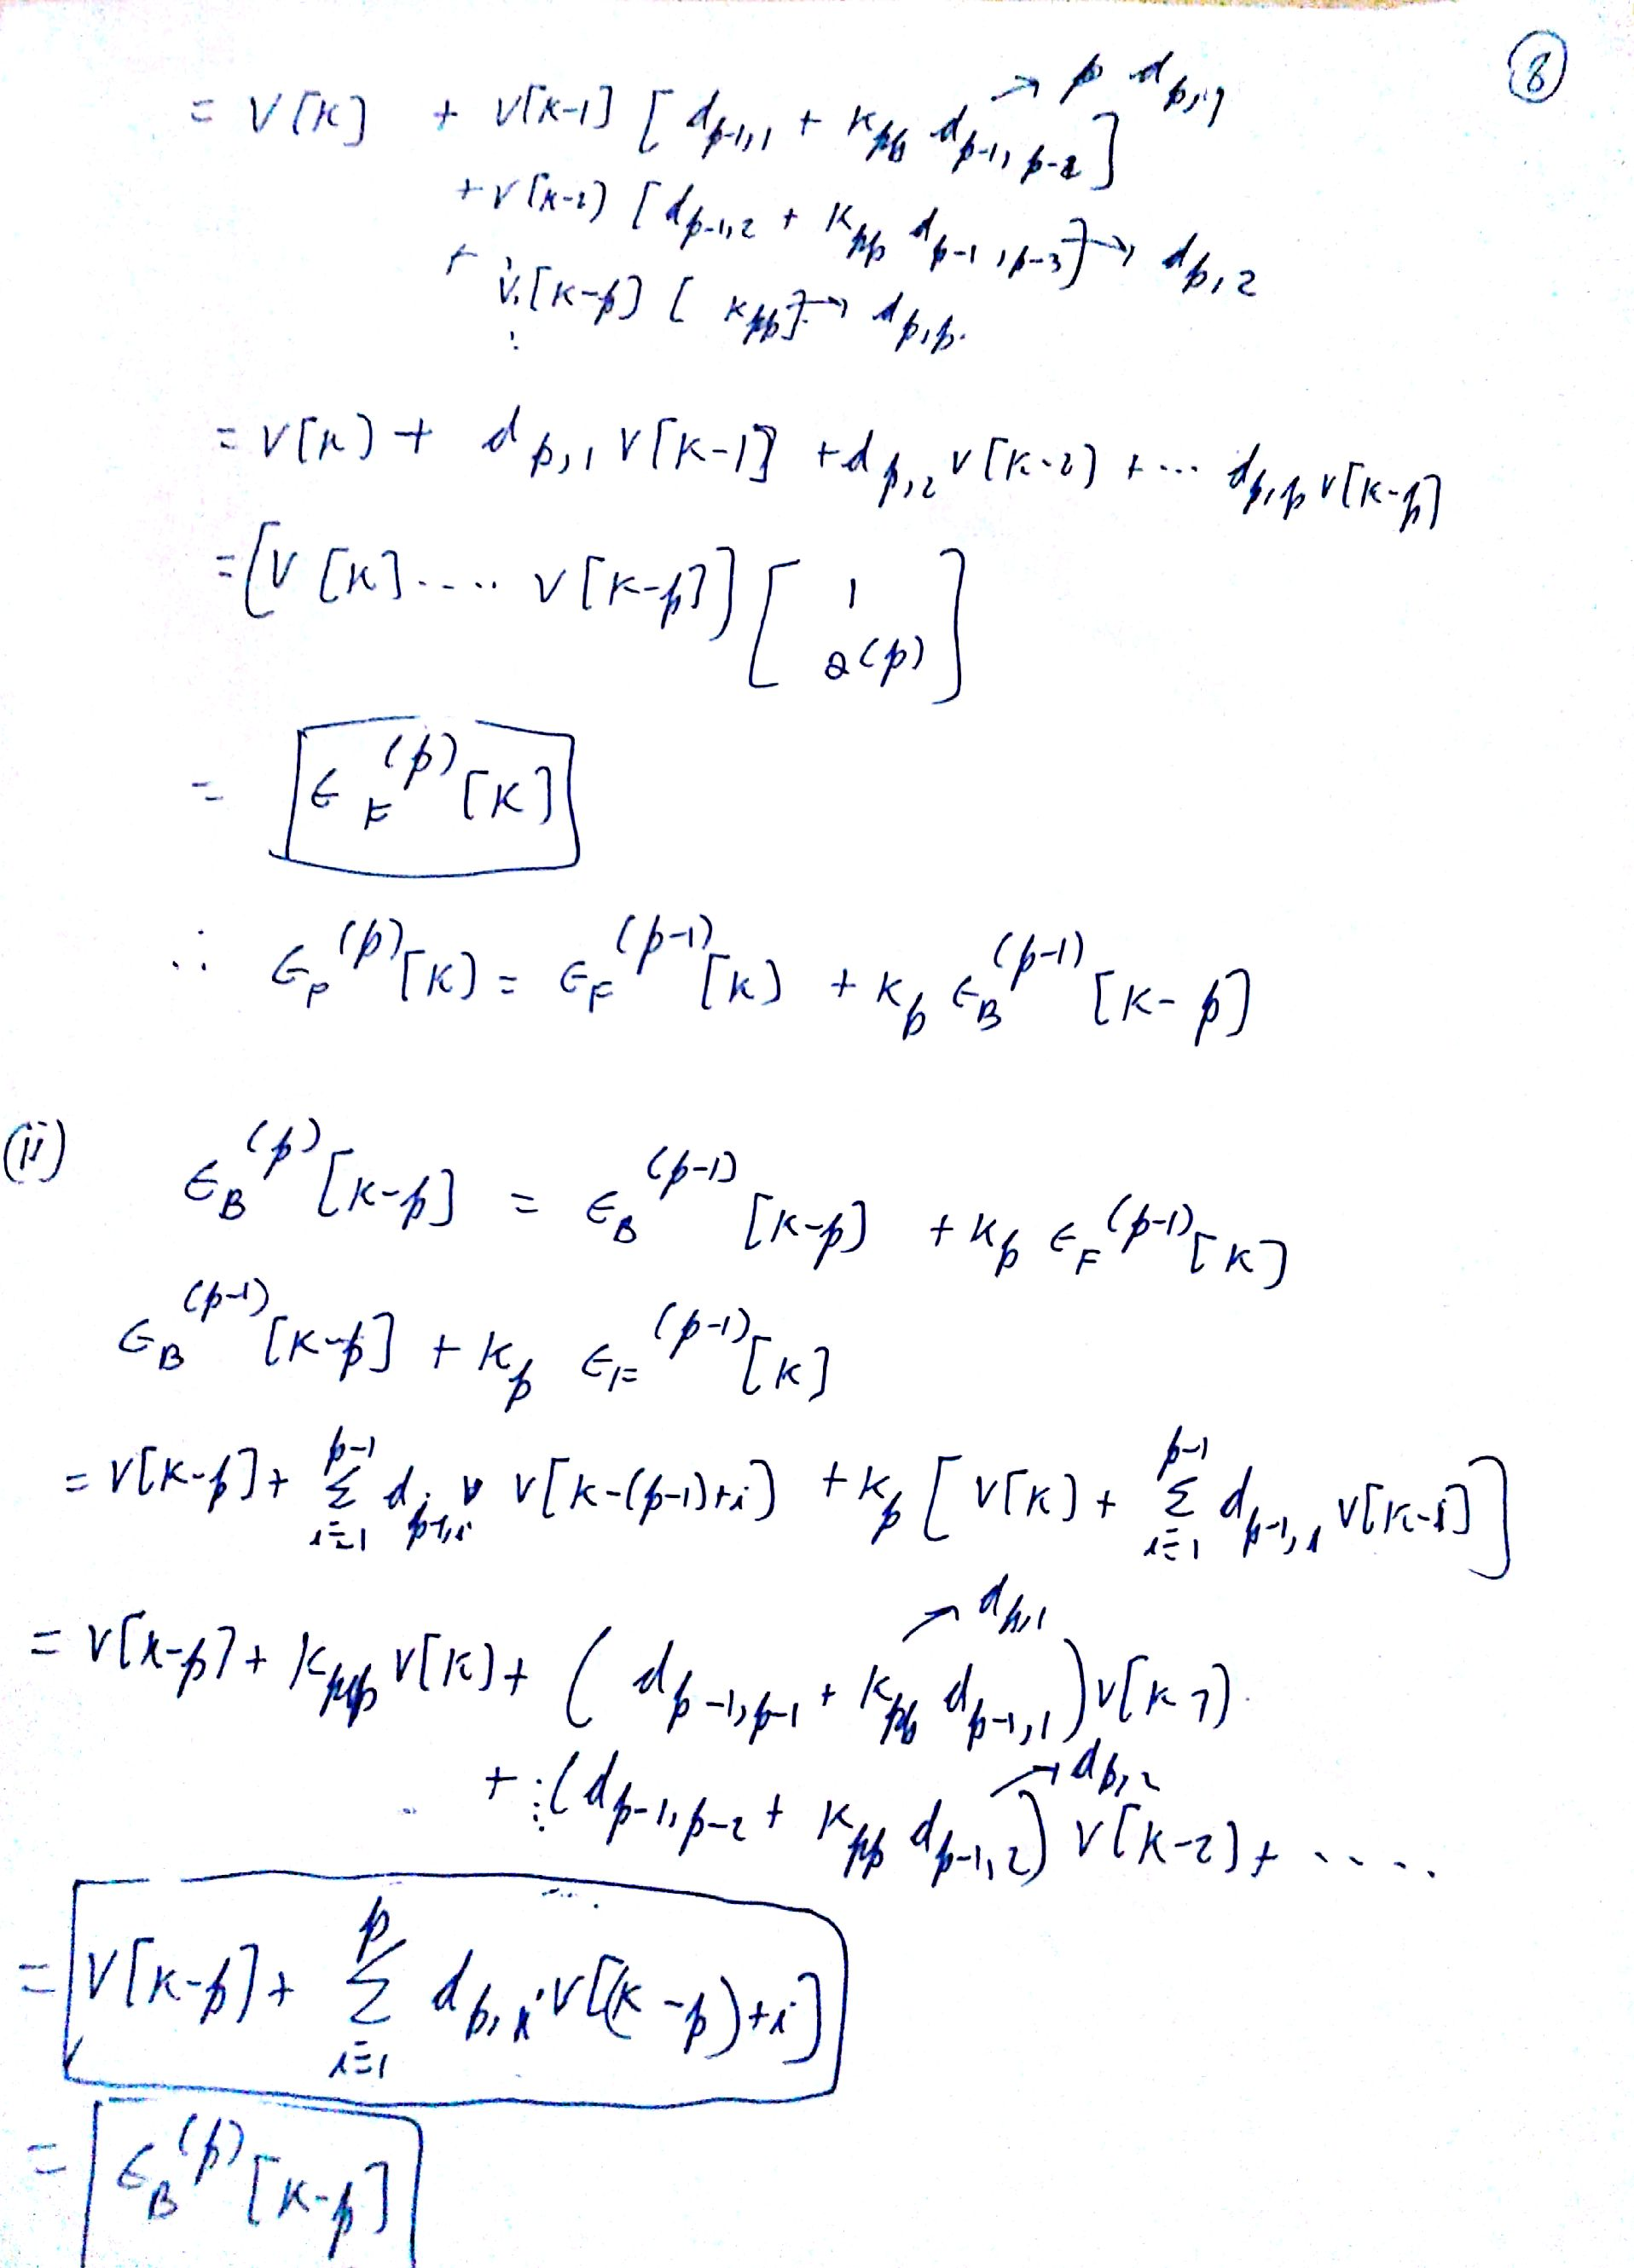 ⑧
= V[K] + V[K-1] [ d_{p-1,1} + K_{pp} d_{p-1,p-2} ] → p d_{p,1}
+ V[K-2] [ d_{p-1,2} + K_{pp} d_{p-1,p-3} ] → d_{p,2}
+ V[K-p] [ K_{pp} ] → d_{p,p}.
= V[K] + d_{p,1} V[K-1] + d_{p,2} V[K-2] + ... d_{p,p} V[K-p]
= [V[K] .... V[K-p]] [ 1
a(p) ]
= ϵ_F^{(p)}[K]
∴ ϵ_F^{(p)}[K] = ϵ_F^{(p-1)}[K] + K_p ϵ_B^{(p-1)}[K-p]
(ii) ϵ_B^{(p)}[K-p] = ϵ_B^{(p-1)}[K-p] + K_p ϵ_F^{(p-1)}[K]
ϵ_B^{(p-1)}[K-p] + K_p ϵ_F^{(p-1)}[K]
= V[K-p] + Σ_{i=1}^{p-1} d_{p-1,i} V[K-(p-1)+i] + K_p [ V[K] + Σ_{i=1}^{p-1} d_{p-1,i} V[K-i] ]
= V[K-p] + K_{pp} V[K] + ( d_{p-1,p-1} + K_{pp} d_{p-1,1} ) V[K-1] → d_{p,1}
+ ( d_{p-1,p-2} + K_{pp} d_{p-1,2} ) V[K-2] + ..... → d_{p,2}
= V[K-p] + Σ_{i=1}^{p} d_{p,i} V[(K-p)+i]
= ϵ_B^{(p)}[K-p]